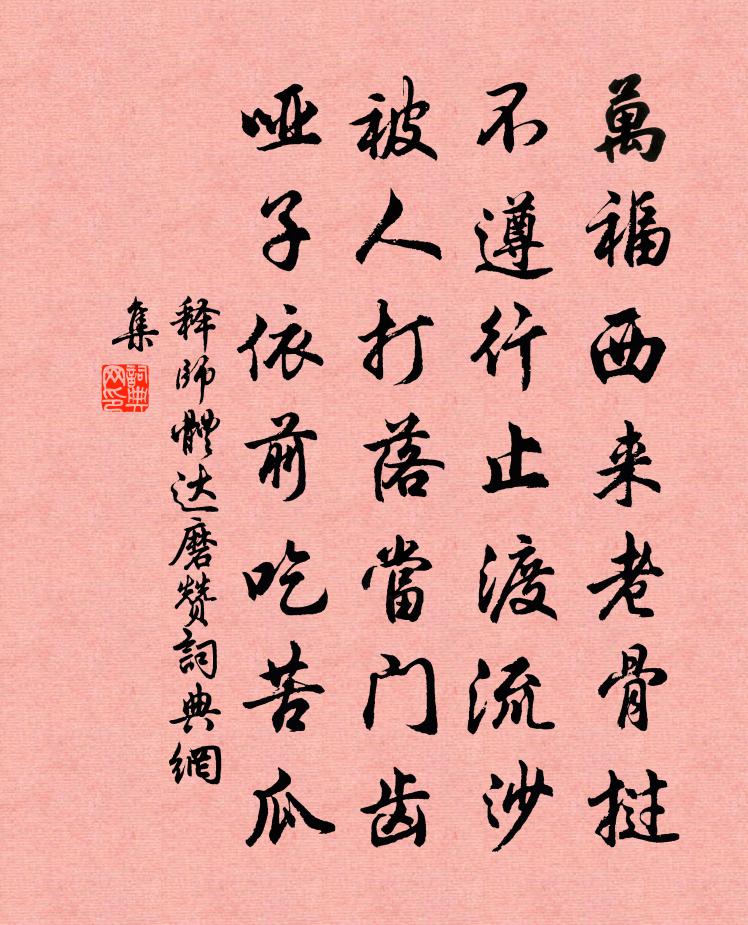 萬福西来老骨挝
不遵行止渡流沙
被人打落當门齿
哑子依前吃苦瓜
释師體达磨赞詞典網
集
詞典
网印